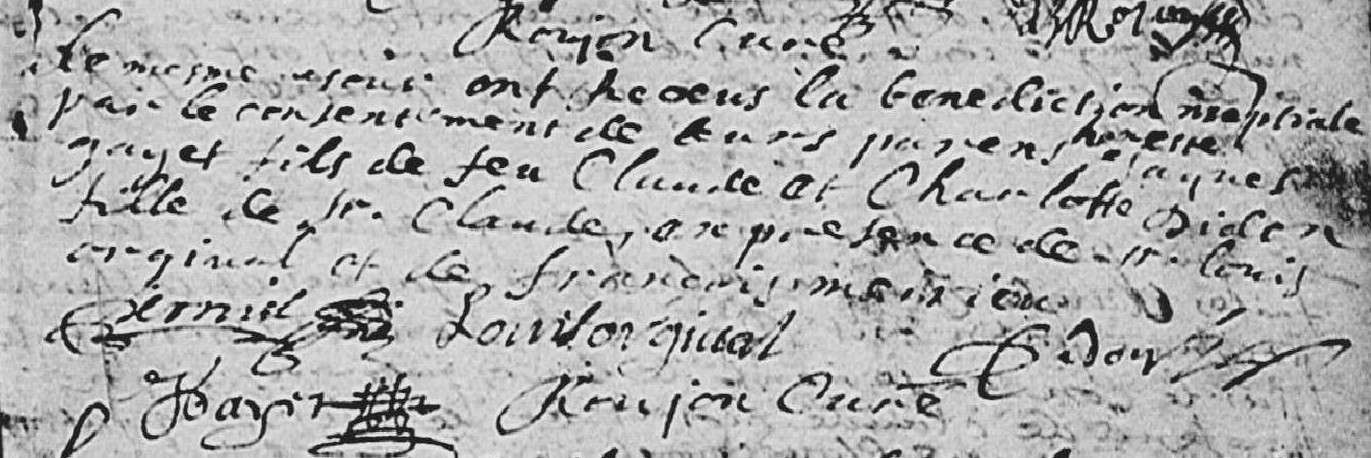 Roujon Curé
Le mesme jour ont receus la benediction nuptiale
par le consentement de leurs parens honeste Jaques
gayet fils de feu Claude et Charlotte Didon
fille de Sr. Claude, en presence de Sr. louis
orginal et de francois meirieu
Louis Orginal Didon
JGayet Roujon Curé